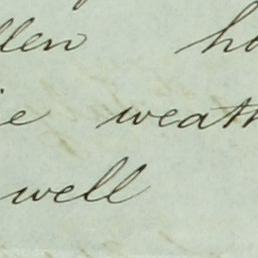 llen ho
ie weath
well